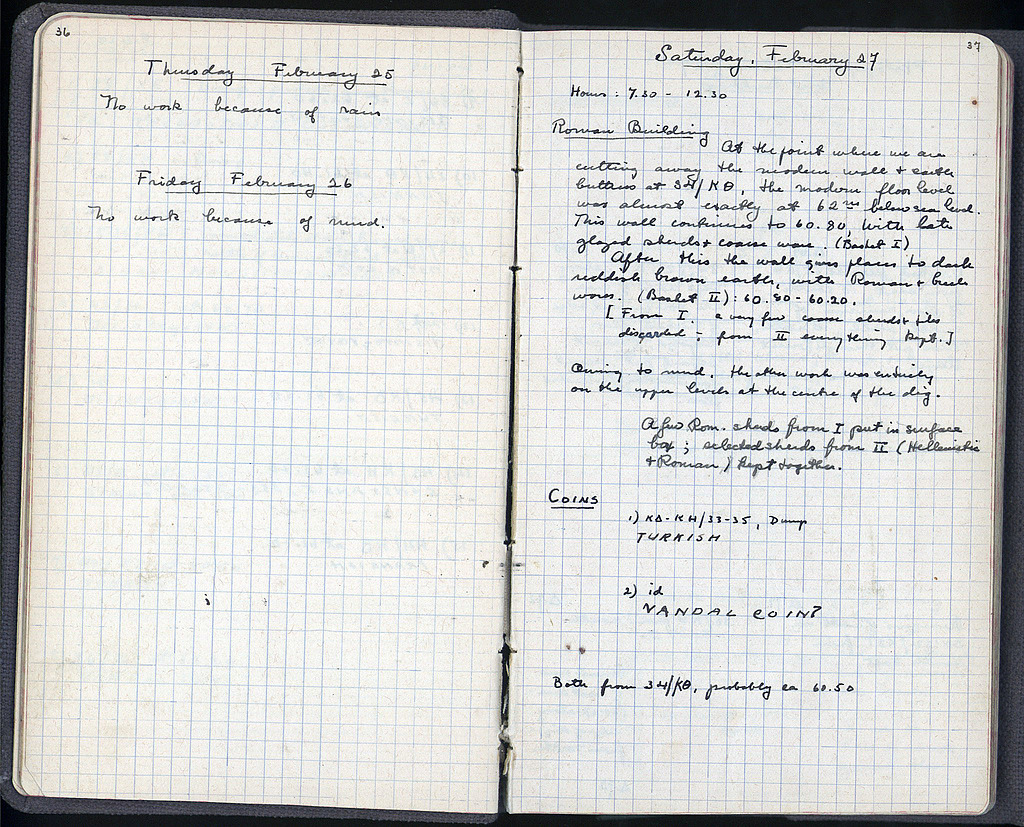 36
Thursday February 25
No work because of rain
Friday February 26
No work because of mud.
37
Saturday, February 27
Hours : 7.30 - 12.30
Roman Building
At the point where we are
cutting away the modern wall & earth
buttress at 34/ΚΘ, the modern floor level
was almost exactly at 62 below sea level.
This wall continues to 60.80, with late
glazed sherds & coarse ware. (Basket I)
After this the wall gives place to dark
reddish brown earth, with Roman &
wares. (Basket II) : 60.80 - 60.20.
[From I, a very few coarse sherds & tiles
discarded ; from II everything kept.]
Owing to mud, the other work was entirely
on the upper levels at the centre of the dig.
A few Rom. sherds from I put in surface
box ; selected sherds from II (Hellenistic
& Roman) kept together.
COINS
1) ΚΔ-ΚΗ/33-35, Dump
TURKISH
2) id
VANDAL COIN?
Both from 34/ΚΘ, probably ca 60.50